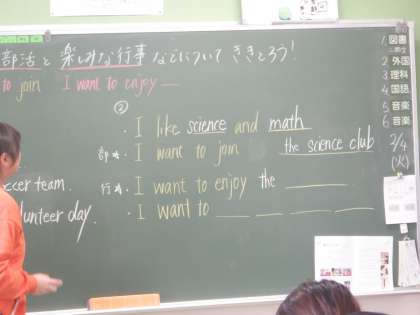 部活と楽しみな行事などについてききとろう!
to join I want to enjoy
②
・I like science and math
部活・I want to join the science club
・I want to enjoy the
・I want to
soccer team.
volunteer day.
1 図書
2 外国
3 理科
4 国語
5 音楽
6 音楽
2/4
(火)